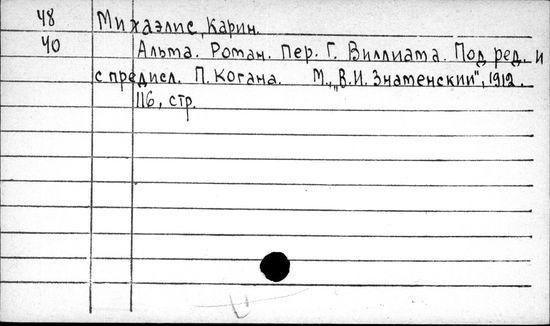 48 Михаэлис, Карин.
40 Альта. Роман. Пер. Г. Виллиама. Под ред. и
с предисл. П. Когана. М., "В.И. Знаменский", 1912.
116, стр.